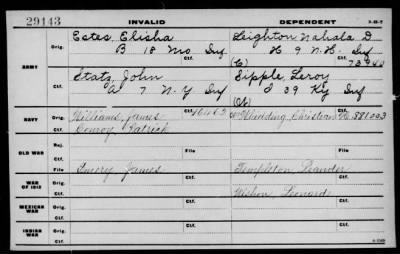 29143 INVALID DEPENDENT
ARMY Orig. Estes, Elisha Leighton Nahala D
B 18 Mo Inf H 9 N.H. Inf
Ctf. (C) Ctf. 73940
Orig. Statz, John Sipple Leroy
A 7 N.Y Inf I 39 Ky Inf
Ctf. (Ch)
NAVY Orig. Williams, James Ctf. 10463 Wedding, Christian Ctf. 881003
Conroy, Patrick
OLD WAR Rej.
Ctf. File File
WAR OF 1812 File Emery, James Templeton, Leander
Orig. Leonard
Ctf.
MEXICAN WAR Orig. Ctf. Ctf.
INDIAN WAR Orig.
Ctf.